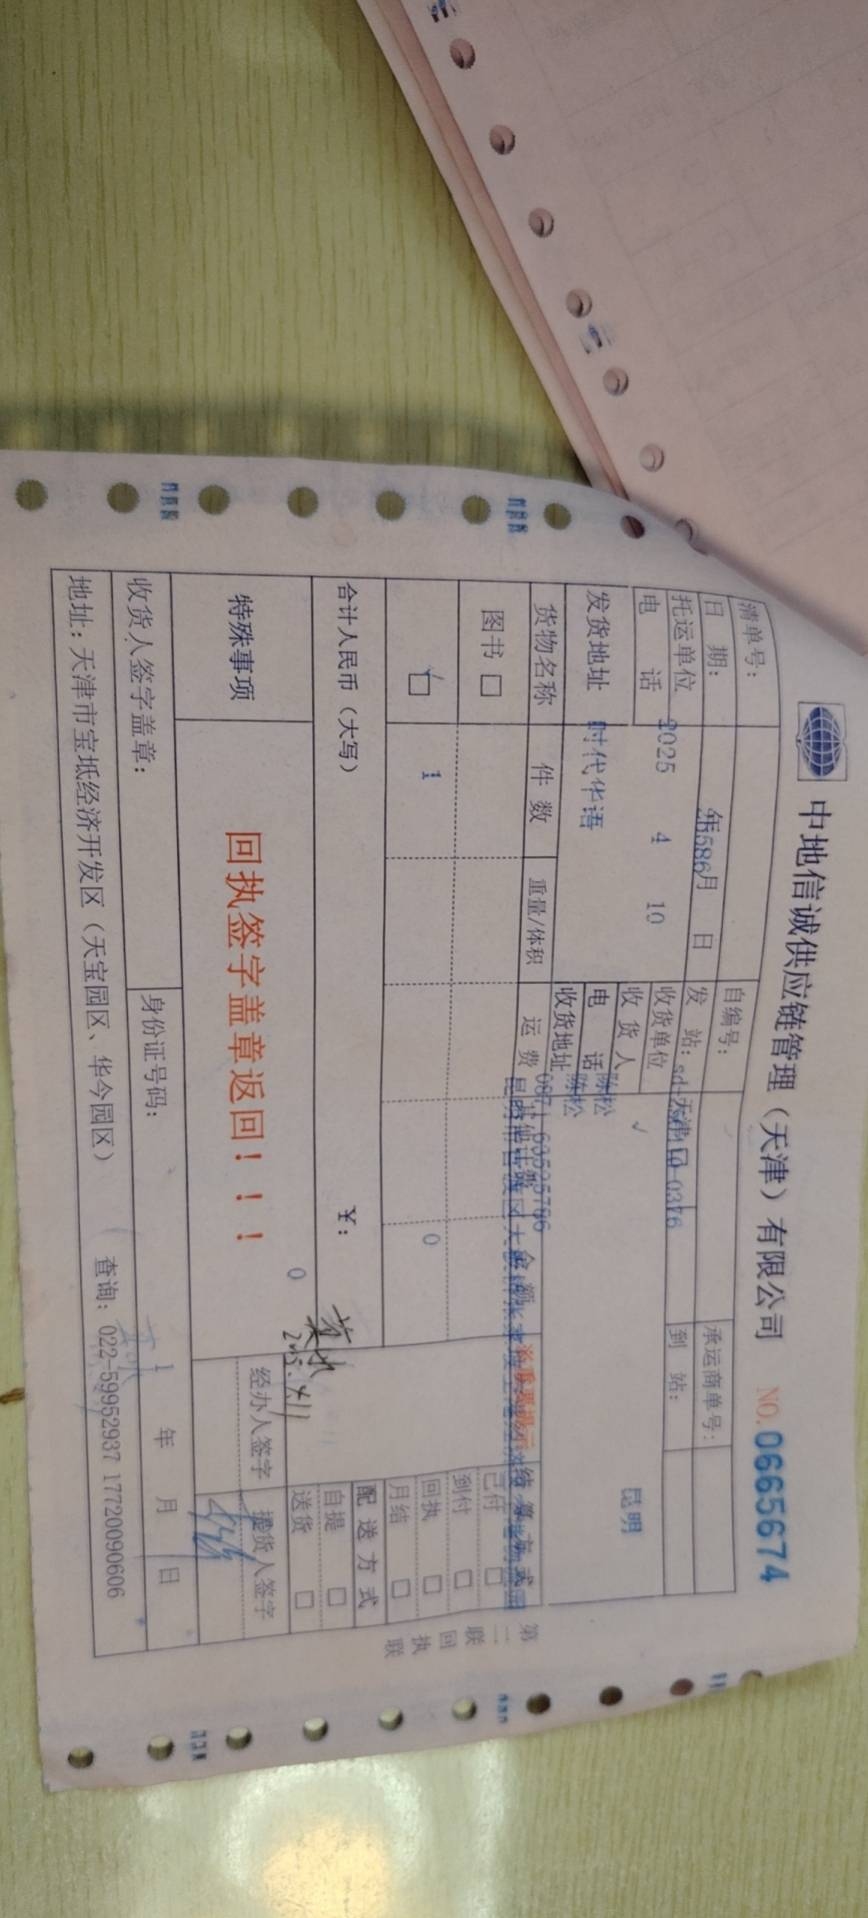 中地信诚供应链管理（天津）有限公司 NO.0665674
清单号：
自编号：
承运商单号：
日 期： 年 月 日
586
发 站：
天津
到 站：
托运单位
2025 4 10
收货单位
电 话
收 货 人
昆明
发货地址 时代华语
电 话 陈松
收货地址 陈松
0871-63525706
货物名称 件 数 重量/体积 运 费 金 额 结 算 方 式
图书 □
已付 □
到付 □
□ 1 0
回执 □
月结 □
合计人民币（大写） ￥：
配 送 方 式
自提 □
送货 □
0
2025.4.11
特殊事项 回执签字盖章返回！！！
经办人签字 提货人签字
收货人签字盖章： 身份证号码： 1 年 月 日
地址：天津市宝坻经济开发区（天宝园区、华今园区） 查询：022-59952937 17720090606
第二联 回执联